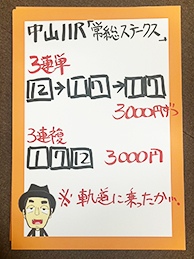 中山11R「常総ステークス」
3連単
12→1 7→1 7
3000円ずつ
3連複
1 7 12 3000円
※軌道に乗ったか…。